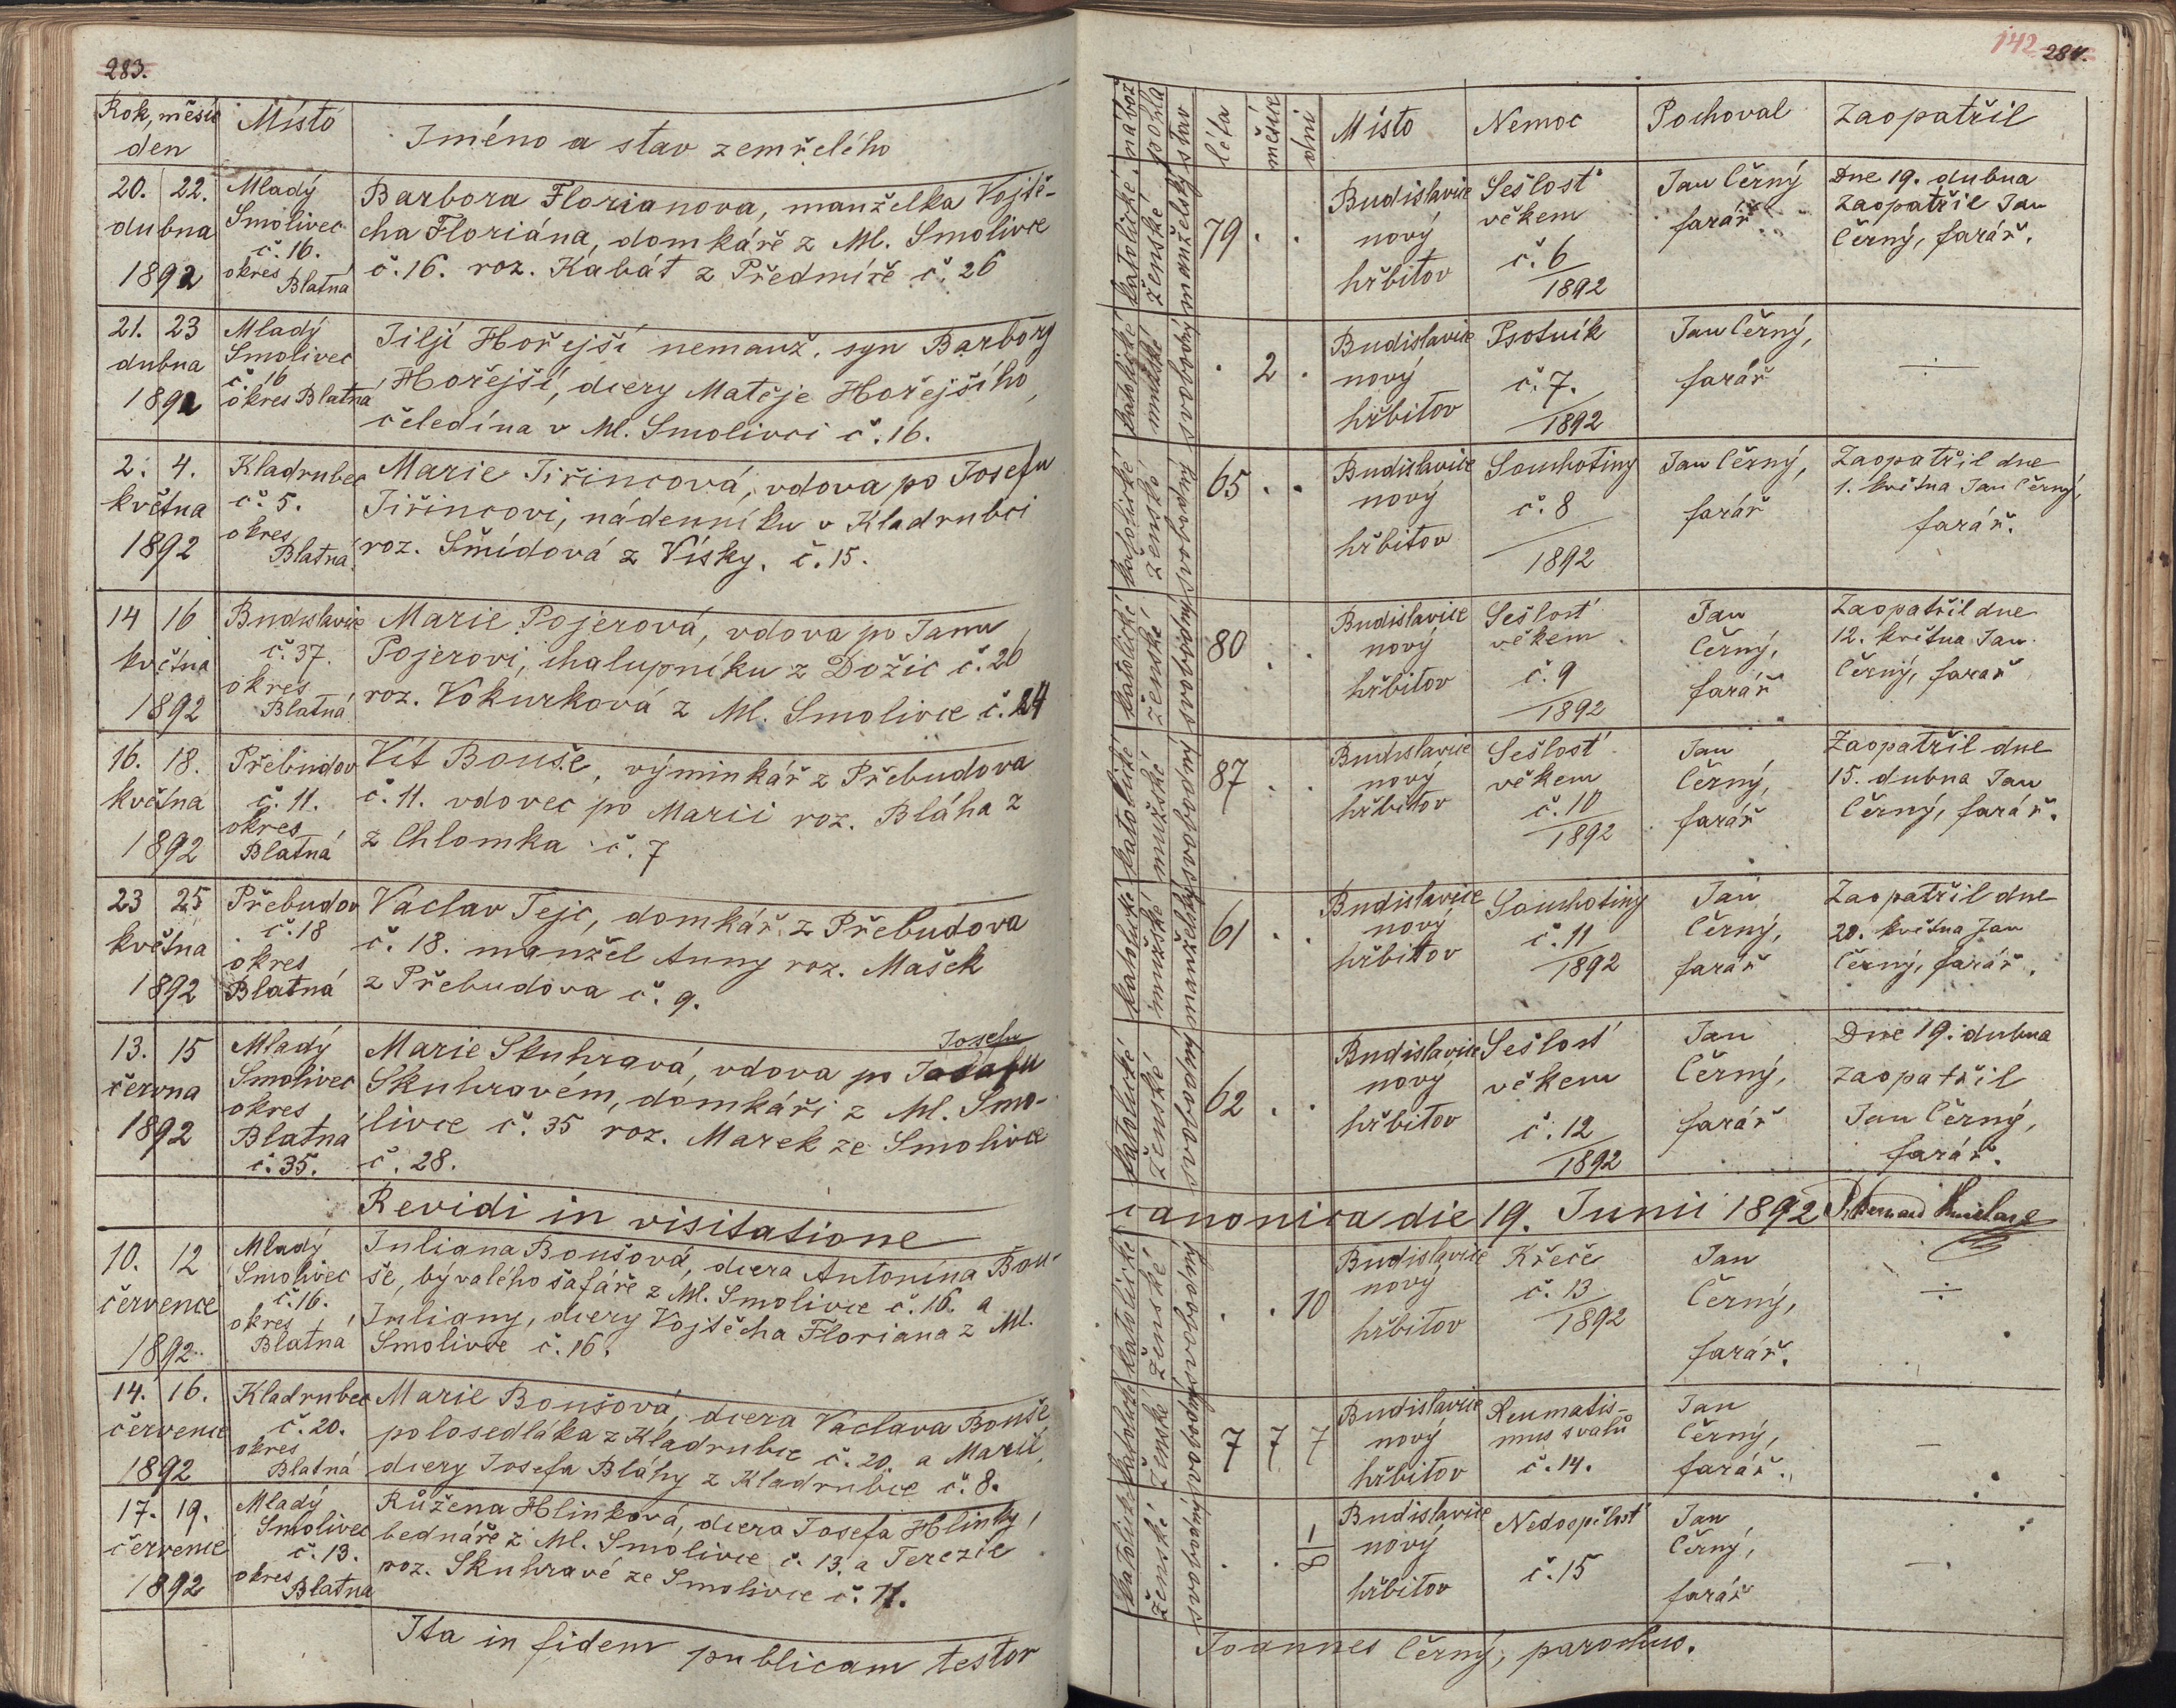 283.
Rok, měsíc
den
Místo
Jméno a stav zemřelého
20. 22.
dubna
1892
Mladý
Smolivec
č. 16.
okres
Blatná
Barbora Florianova, manželka Vojtě-
cha Floriána, domkáře z Ml. Smolivce
č. 16. roz. Kabát z Předmíře č. 26
21. 23
dubna
1892
Mladý
Smolivec
č. 16
okres Blatná
Jiljí Hořejší nemanž. syn Barbory
Hořejší, dcery Matěje Hořejšího,
čeledína v Ml. Smolivci č. 16.
2. 4.
května
1892
Kladrubec
č. 5.
okres
Blatná
Marie Jiřincová, vdova po Josefu
Jiřincovi, nádenníku v Kladrubci
roz. Šmídová z Vísky. č. 15.
14 16
května
1892
Budislavice
č. 37.
okres
Blatná
Marie Pojerová, vdova po Janu
Pojerovi, chalupníku z Dožic č. 26
roz. Vokurková z Ml. Smolivce č. 24
16. 18.
května
1892
Přebudov
č. 11.
okres
Blatná
Vít Bouše, výminkář z Přebudova
č. 11. vdovec po Marii roz. Bláha z
z Chlomka č. 7
23 25
května
1892
Přebudov
č. 18
okres
Blatná
Václav Tejc, domkář z Přebudova
č. 18. manžel Anny roz. Mašek
z Přebudova č. 9.
13. 15
června
1892
Mladý
Smolivec
okres
Blatná
č. 35.
Josefu
Marie Skuhravá, vdova po
Skuhravém, domkáři z Ml. Smo-
livce č. 35 roz. Marek ze Smolivce
č. 28.
Revidi in visitatione
10. 12
července
1892
Mladý
Smolivec
č. 16.
okres
Blatná
Juliana Boušová, dcera Antonína Bou-
še, bývalého šafáře z Ml. Smolivce č. 16. a
Juliany, dcery Vojtěcha Floriana z Ml.
Smolivce č. 16.
14. 16.
července
1892
Kladrubec
č. 20.
okres
Blatná
Marie Boušová, dcera Václava Bouše
polosedláka z Kladrubce č. 20. a Marie,
dcery Josefa Bláhy z Kladrubce č. 8.
17. 19.
července
1892
Mladý
Smolivec
č. 13.
okres
Blatná
Růžena Hlinková, dcera Josefa Hlinky,
bednáře z Ml. Smolivce č. 13. a Terezie
roz. Skuhravé ze Smolivce č. 11.
Ita in fidem publicam testor
142 284.
nábož
pohla
stav
léta
měsíce
dni
Místo
Nemoc
Pochoval
Zaopatřil
katolické
ženské
manželský
79 . .
Budislavice
nový
hřbitov
Sešlost
věkem
č. 6
1892
Jan Černý
farář
Dne 19. dubna
Zaopatřil Jan
Černý, farář.
katolické
mužské
svobodný
. 2 .
Budislavice
nový
hřbitov
Psotník
č. 7.
1892
Jan Černý,
farář
÷
katolické
ženské
svobodný
65 . .
Budislavice
nový
hřbitov
Souchotiny
č. 8
1892
Jan Černý,
farář
Zaopatřil dne
1. května Jan Černý,
farář.
katolické
ženské
svobodný
80 . .
Budislavice
nový
hřbitov
Sešlost
věkem
č. 9
1892
Jan
Černý,
farář
Zaopatřil dne
12. května Jan
Černý, farář
katolické
mužské
svobodný
87 . .
Budislavice
nový
hřbitov
Sešlost
věkem
č. 10
1892
Jan
Černý,
farář
Zaopatřil dne
15. dubna Jan
Černý, farář.
katolické
mužské
manželský
61 . .
Budislavice
nový
hřbitov
Souchotiny
č. 11
1892
Jan
Černý,
farář
Zaopatřil dne
20. května Jan
Černý, farář.
katolické
ženské
svobodný
62 . .
Budislavice
nový
hřbitov
Sešlost
věkem
č. 12
1892
Jan
Černý,
farář
Dne 19. dubna
zaopatřil
Jan Černý,
farář.
canonica die 19. Junii 1892
katolické
ženské
svobodný
. . 10
Budislavice
nový
hřbitov
Křeče
č. 13
1892
Jan
Černý,
farář.
÷
katolické
ženské
svobodný
7 7 7
Budislavice
nový
hřbitov
Reumatis-
mus svalů
č. 14.
Jan
Černý,
farář.
—
katolické
ženské
svobodný
. . 1/8
Budislavice
nový
hřbitov
Nedospělost
č. 15
Jan
Černý,
farář
—
Joannes Černý, parochus.